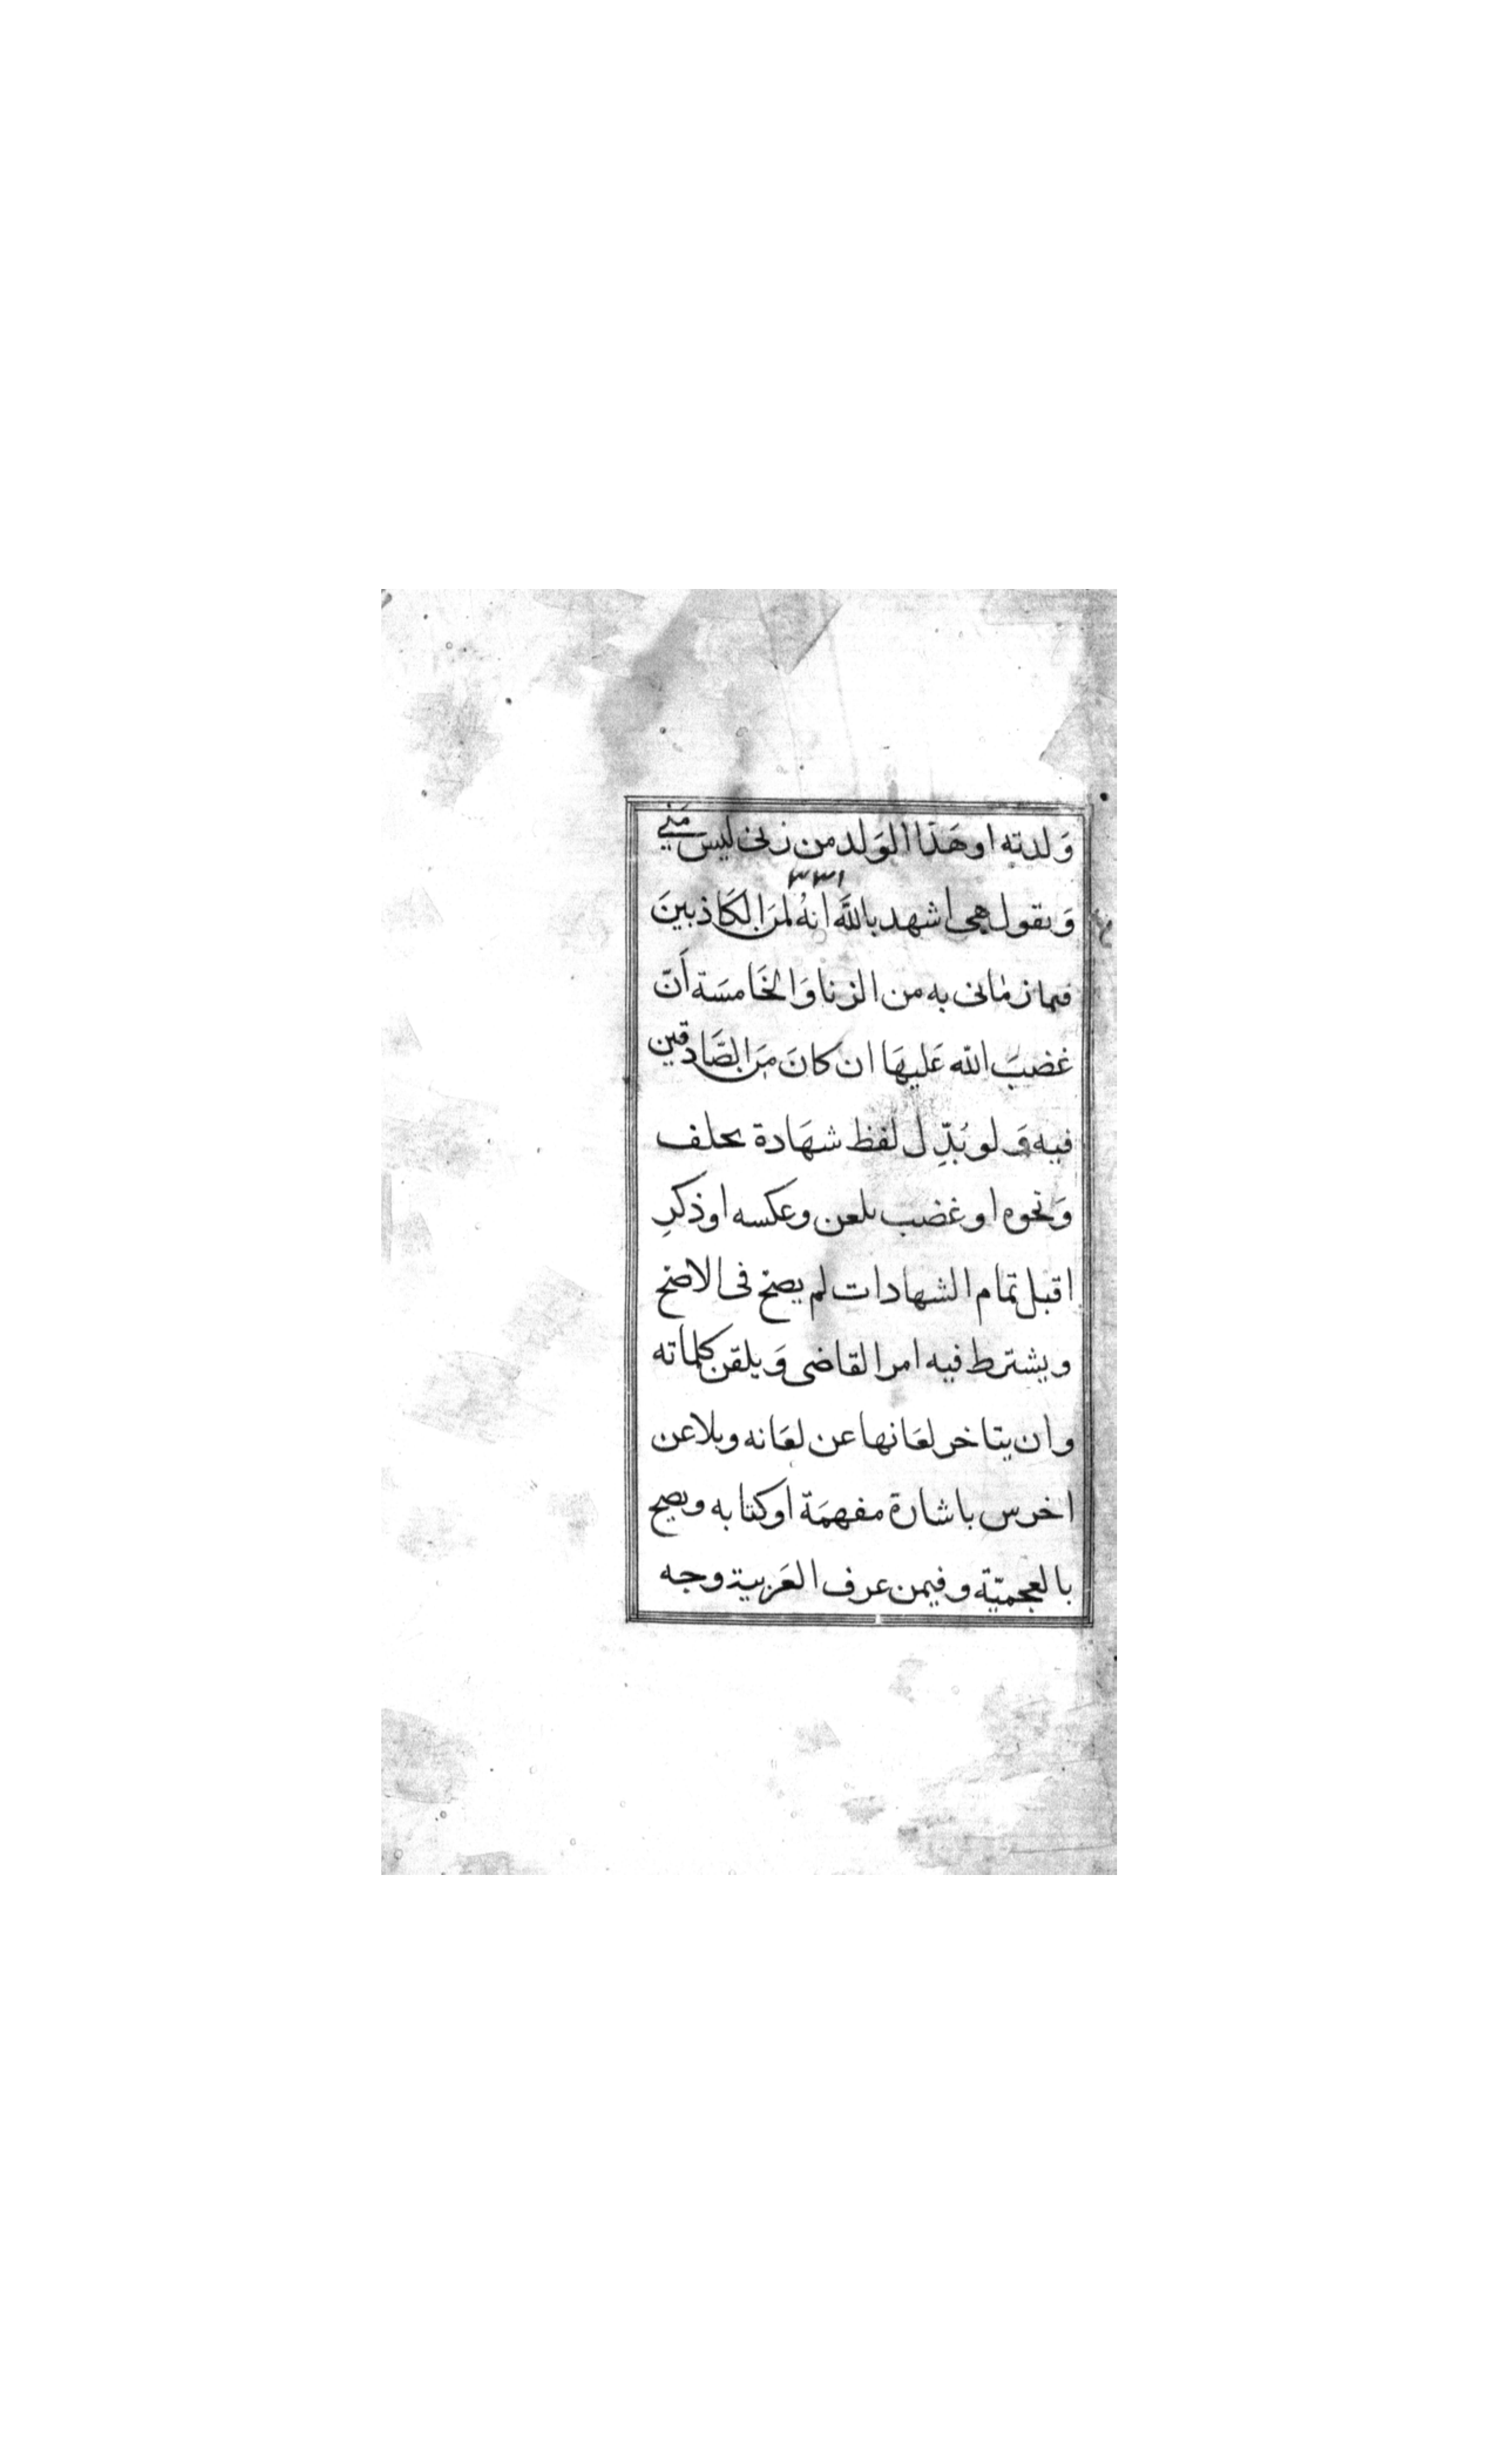 وَلدته او هَذا الوَلد من زنى ليس مَني
٣٣١
وَيقول هى اشهد باللّه انهُ لمَن الكَاذبينَ
فيما زمانى به من الزنا وَالخَامسَة أنّ
غضبَ اللّه عَليهَا ان كانَ مَن الصَّادقين
فيه وَلو بُدِّل لفظ شهَادة بحلف
وَنحوه او غضب بلعن وعكسه او ذكرِ
ا قبل تمام الشهادات لم يصح فى الاصح
ويشترط فيه امر القاضى وَيلقن كلماته
وان يتاخر لعَانها عن لعَانه ويلاعن
اخرس باشارة مفهمَة اوكتابه ويصح
بالعجميّة وفيمن عرف العَربية وجه